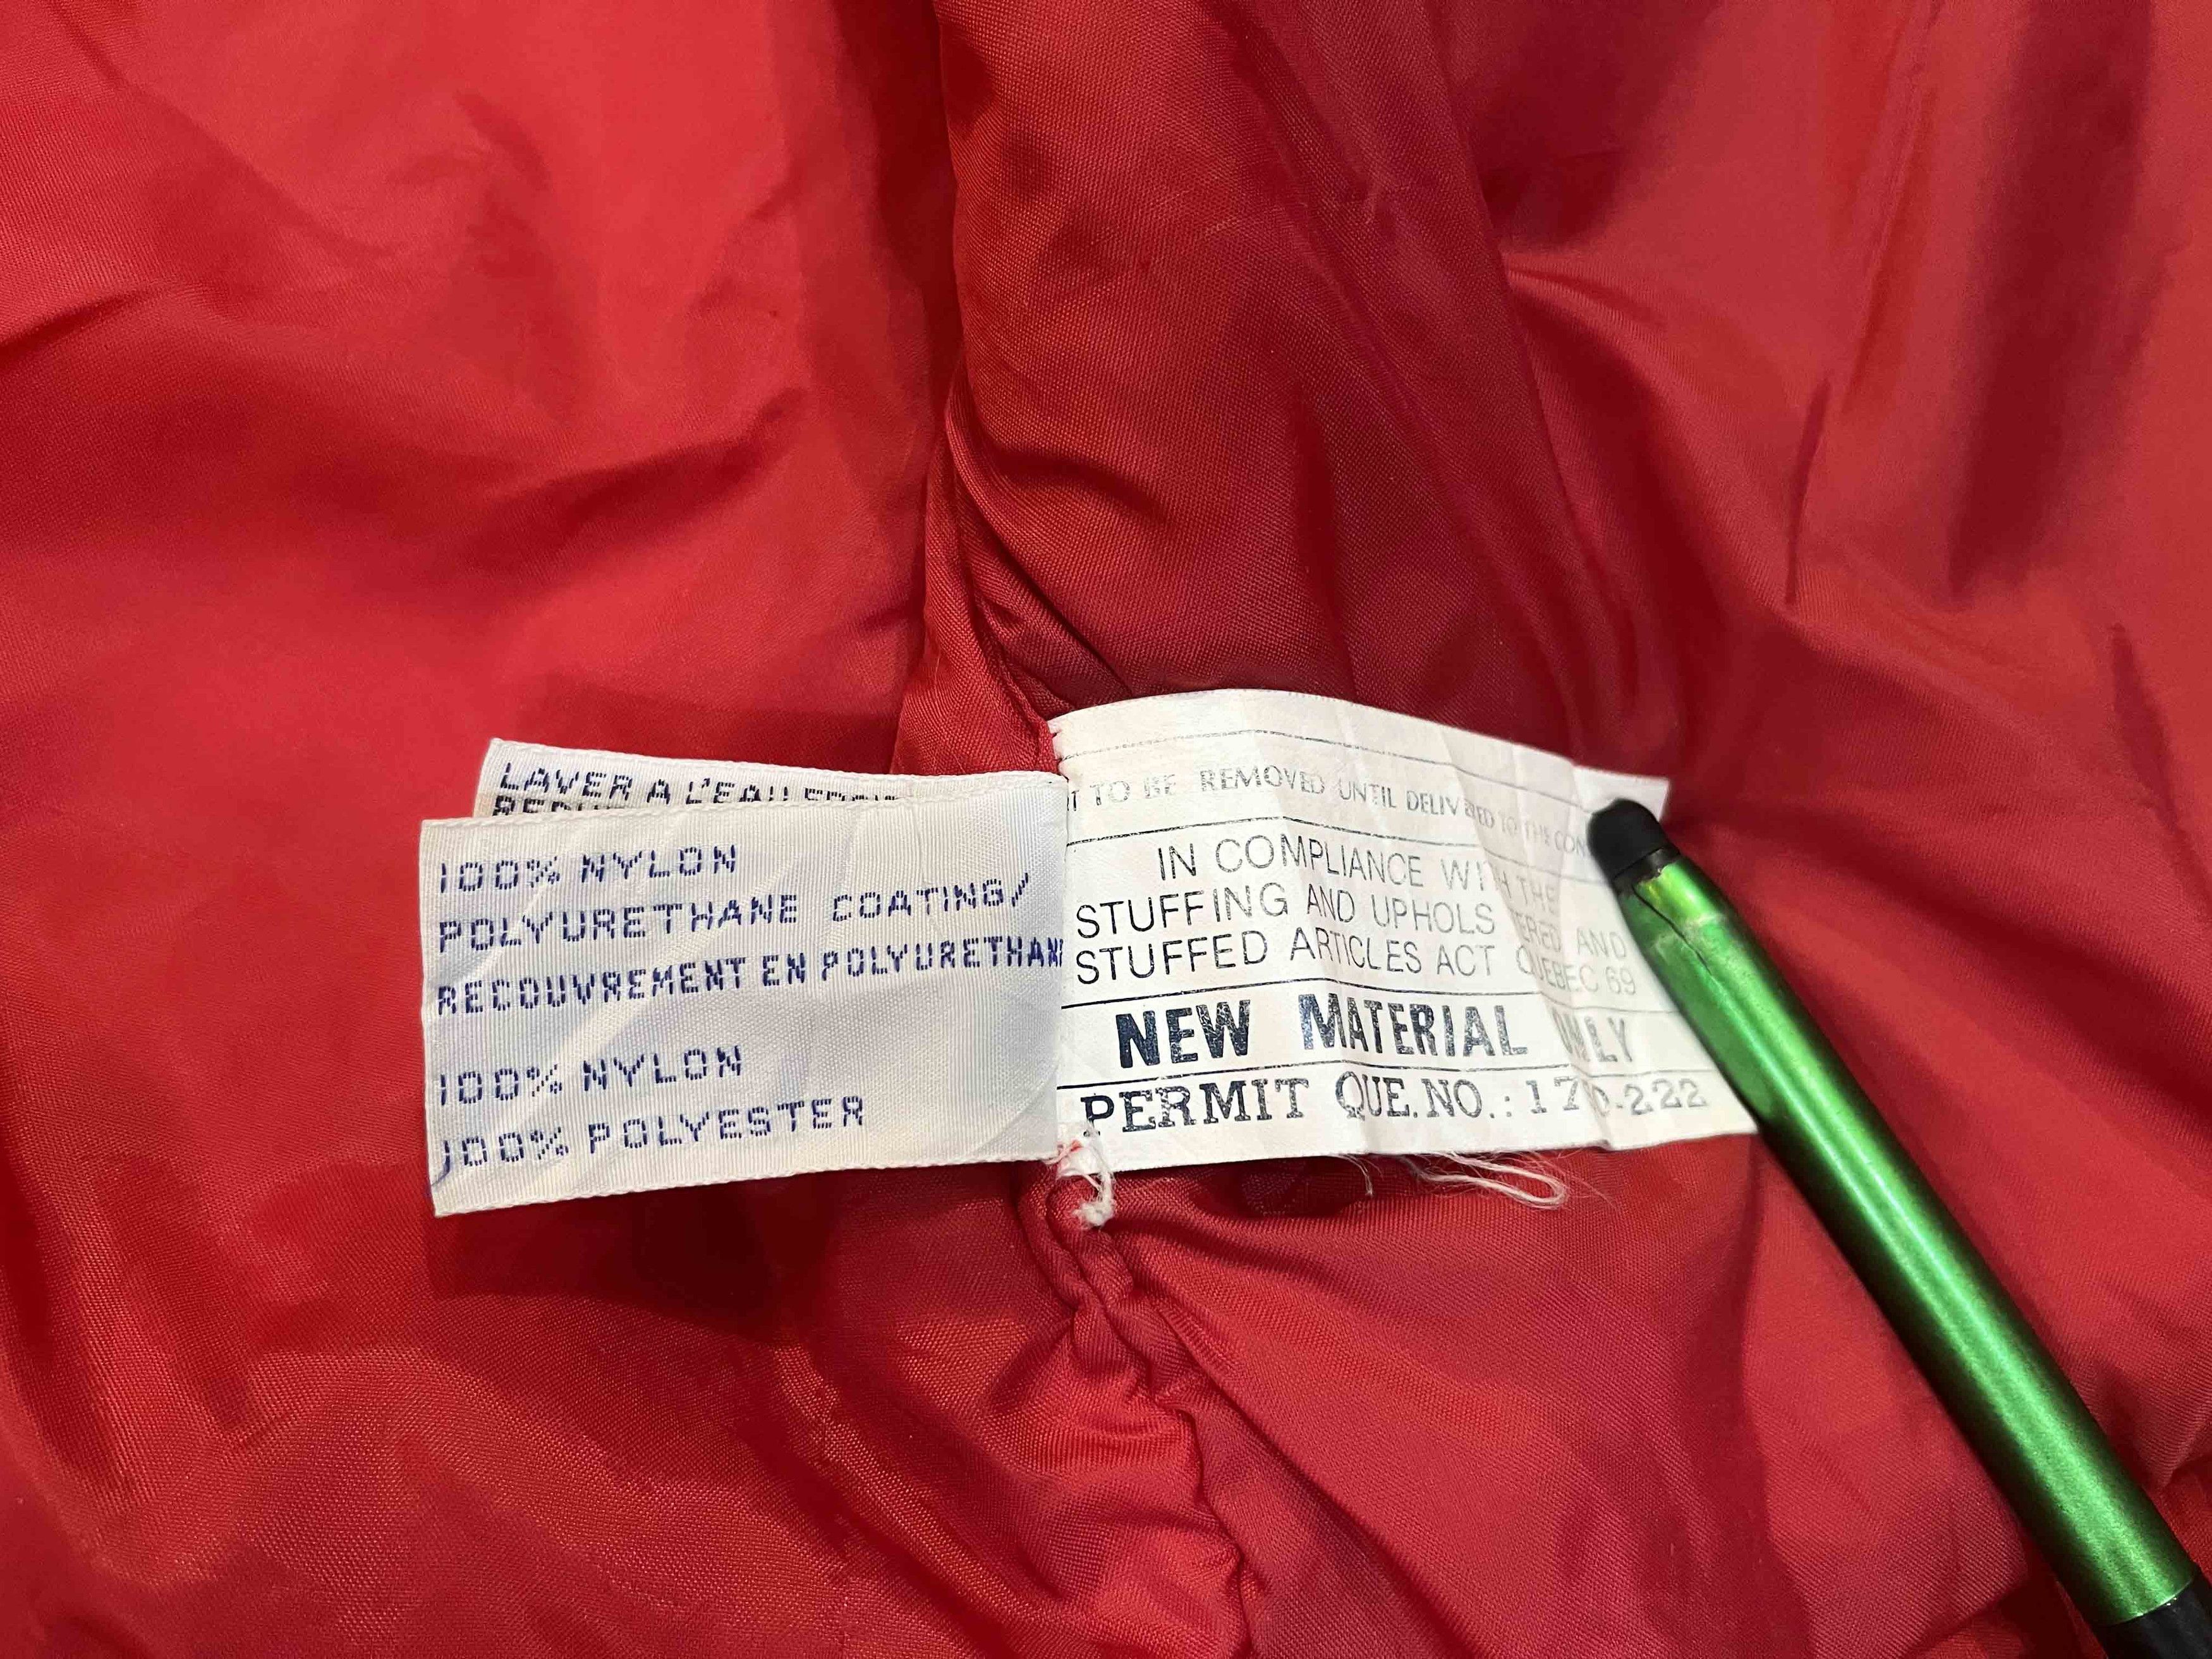 LAVER A L'EAU
100% NYLON
POLYURETHANE COATING/
RECOUVREMENT EN POLYURETHANE
100% NYLON
100% POLYESTER
TO BE REMOVED UNTIL DELIVERED TO THE CON
IN COMPLIANCE WITH THE
STUFFING AND UPHOLSTERED AND
STUFFED ARTICLES ACT QUEBEC 69
NEW MATERIAL ONLY
PERMIT QUE. NO.: